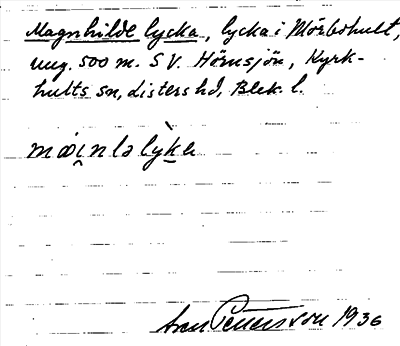 Magnhilde lycka, lycka i Mörbohult,
ung. 500 m. S V. Hörnsjön, Kyrk-
hults sn, Listers hd, Blek. l.
mæi̯nləlỳka
Pettersson 1936